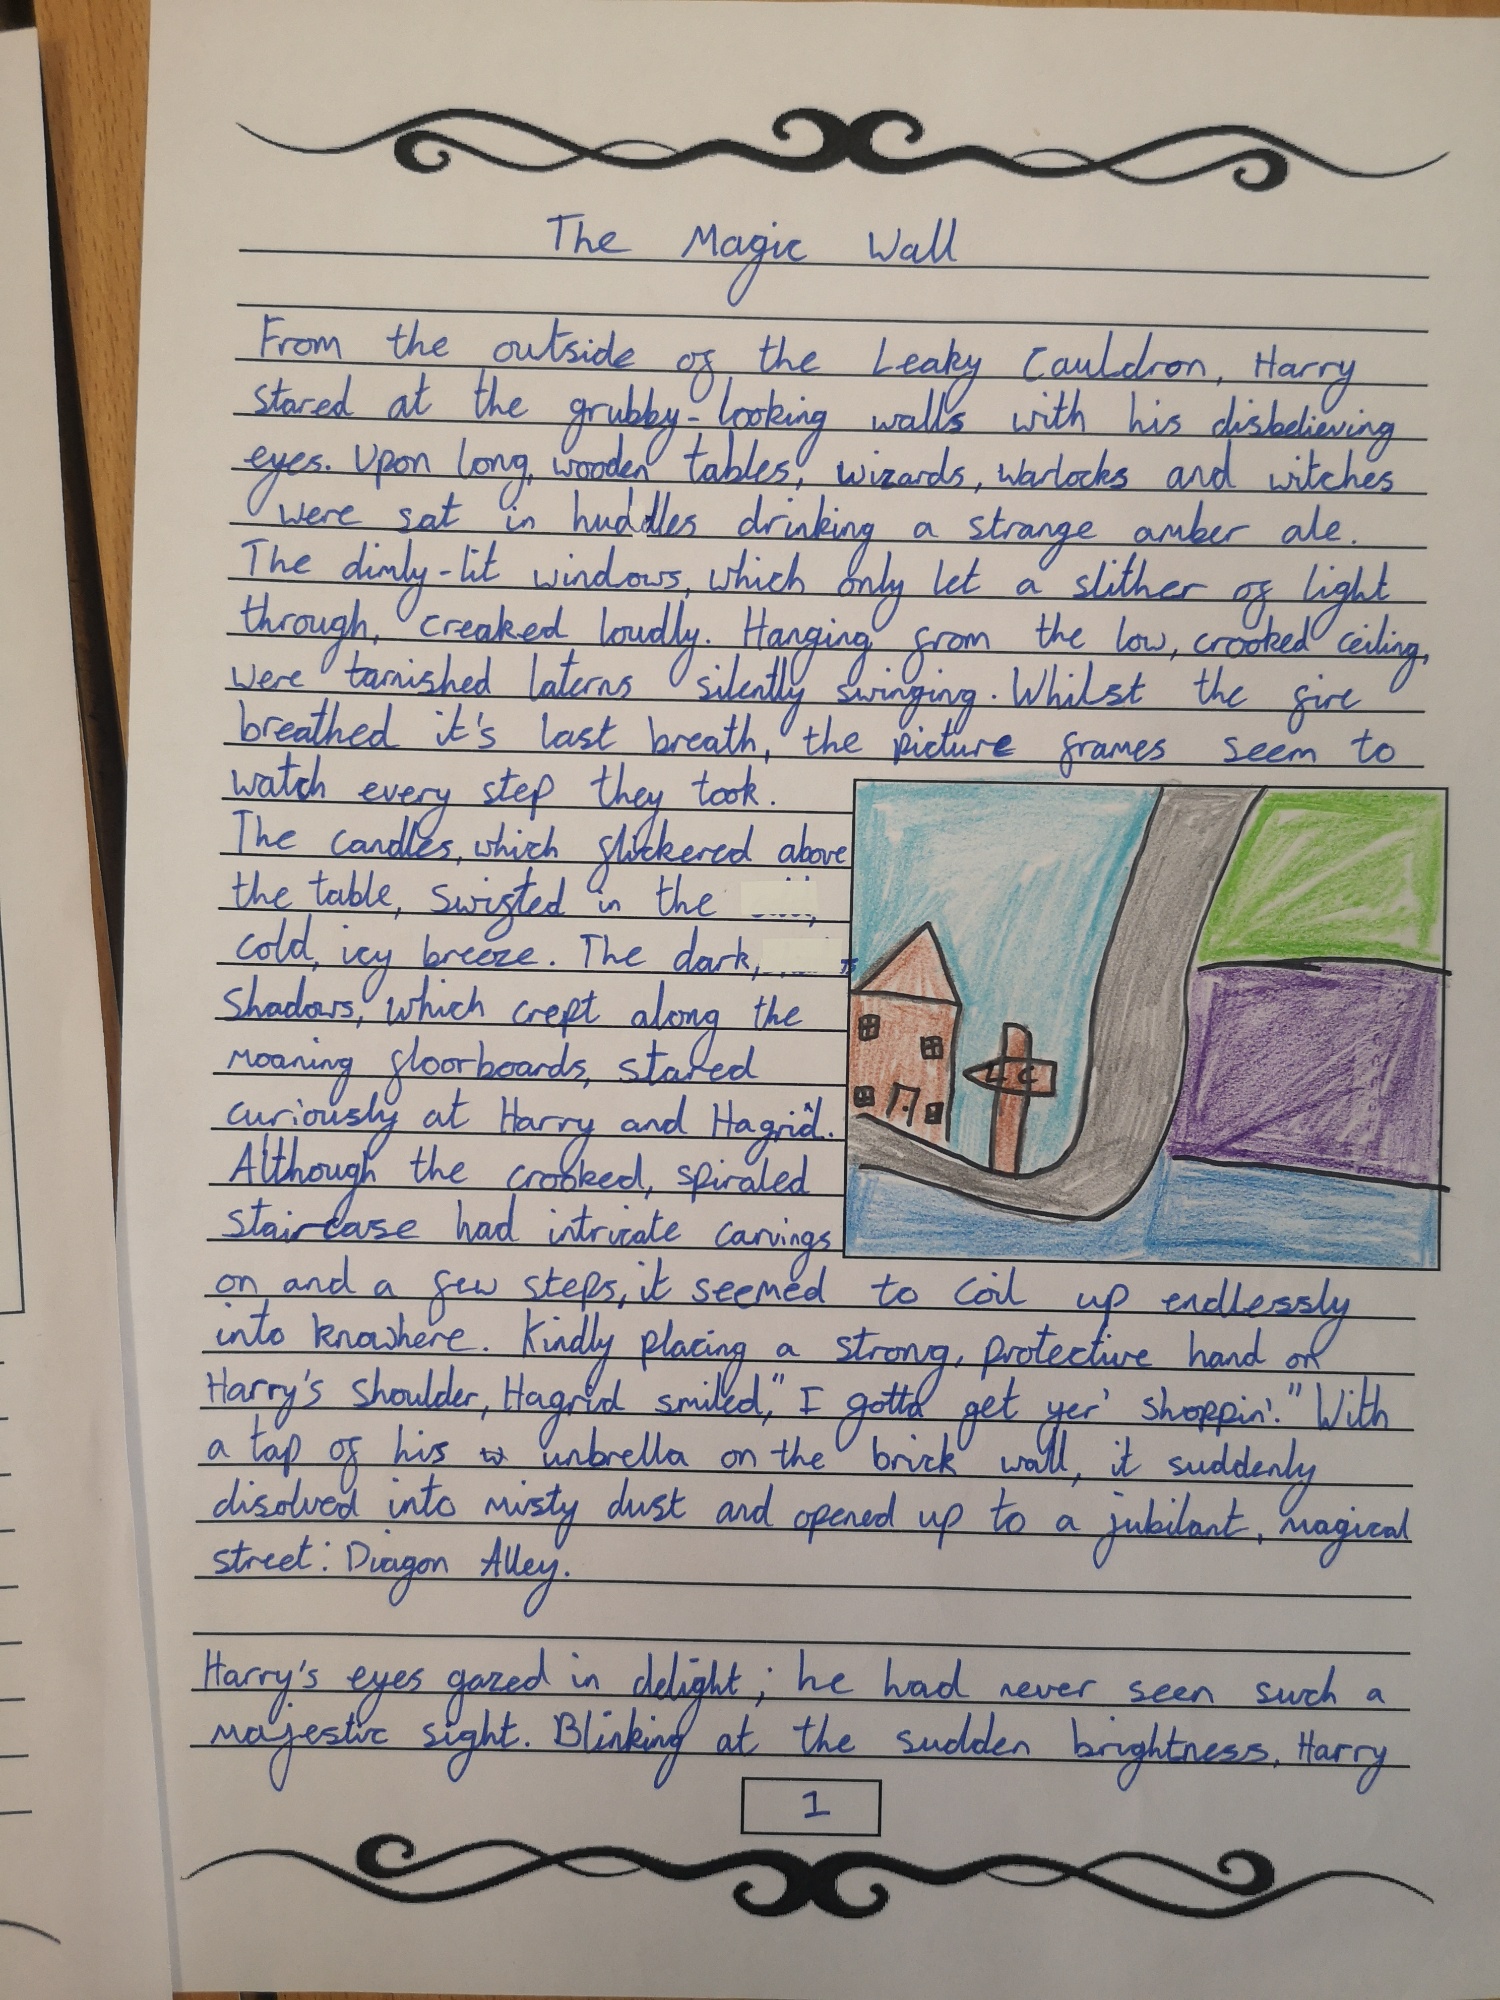 The Magic Wall
From the outside of the Leaky Cauldron, Harry
stared at the grubby-looking walls with his disbelieving
eyes. Upon long, wooden tables, wizards, warlocks and witches
were sat in huddles drinking a strange amber ale.
The dimly-lit windows, which only let a slither of light
through, creaked loudly. Hanging from the low, crooked ceiling,
were tarnished laterns silently swinging. Whilst the fire
breathed it's last breath, the picture frames seem to
watch every step they took.
The candles, which flickered above
the table, swisted in the
cold, icy breeze. The dark,
shadows, which crept along the
moaning floorboards, stared
curiously at Harry and Hagrid.
Although the crooked, spiraled
staircase had intricate carvings
on and a few steps, it seemed to coil up endlessly
into knowhere. Kindly placing a strong, protective hand on
Harry's shoulder, Hagrid smiled," I gotta get yer' shoppin'." With
a tap of his unbrella on the brick wall, it suddenly
disolved into misty dust and opened up to a jubilant, magical
street: Diagon Alley.
Harry's eyes gazed in delight; he had never seen such a
majestic sight. Blinking at the sudden brightness, Harry
LC
1